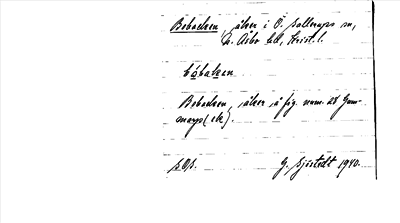 Bobacken, åker i Ö. Sallerups sn,
N. Åsbo hd, Krist. l.
bóbaken
Bobacken, åker å fig. num. 28 Gum-
marp (ek).
sOs. G. Sjöstedt 1940.